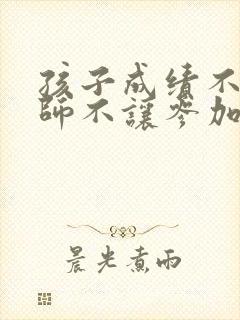 孩子成绩不
師不讓參加
晨光煮雨